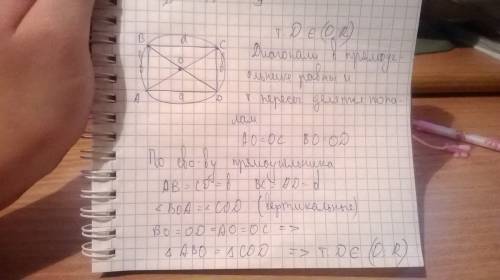 т. D ∈ (O, R)
B d C
Диагонали в прямоуго-
O
льнике равны и
A a D
т. пересеч делятся попо-
лам
AO=OC BO=OD
По сво-ву прямоугольника
AB=CD=b
∠BOA=∠COD (вертикальные)
BO=OD=AO=OC =>
ΔABO=ΔCOD => т. D∈(O, R)